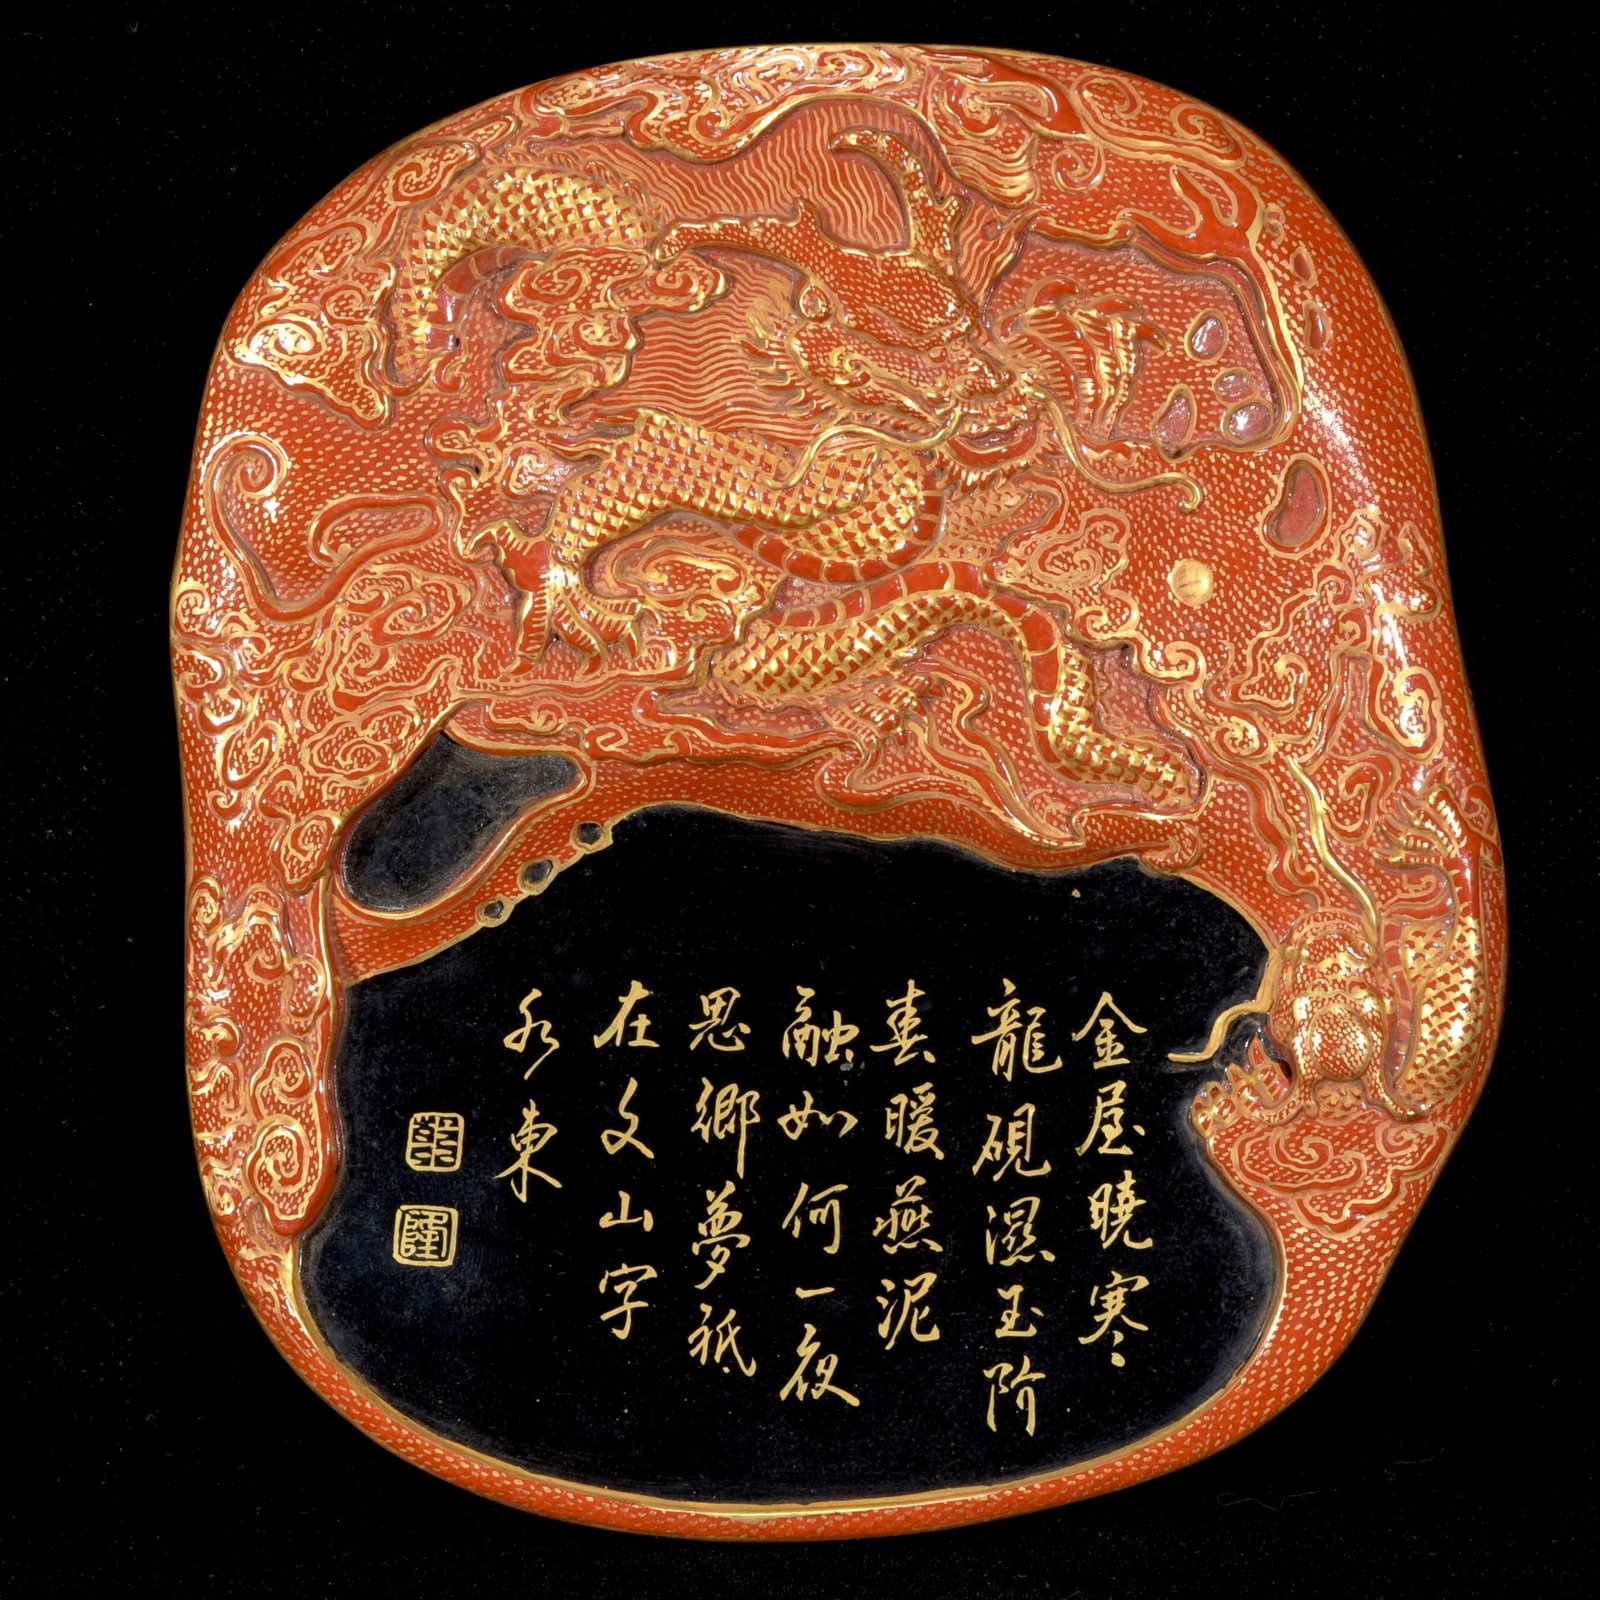 金屋曉寒
龍硯濕玉階
春暖燕泥
融如何一夜
思鄉夢祗
在文山字
水東
隆